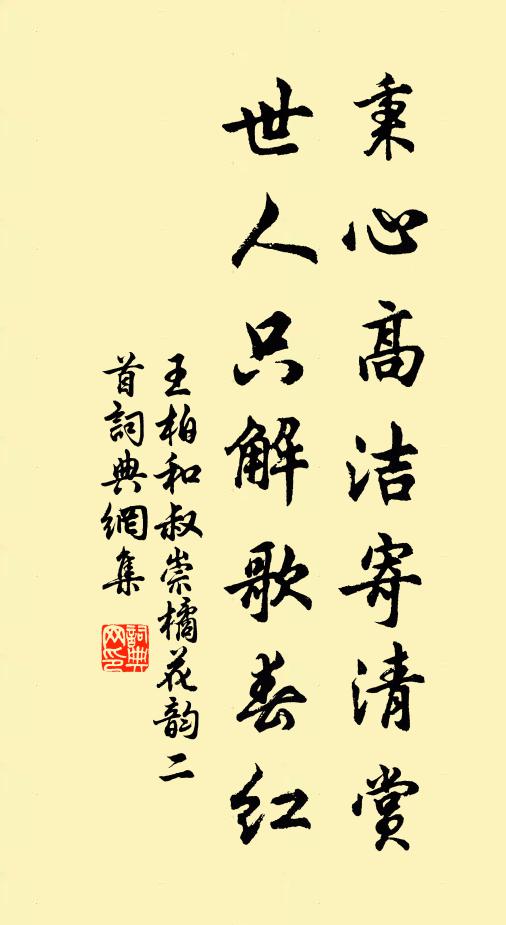 秉心高洁寄清賞
世人只解歌春紅
王柏和叔崇橘花韵二
首詞典網集
詞典
网印